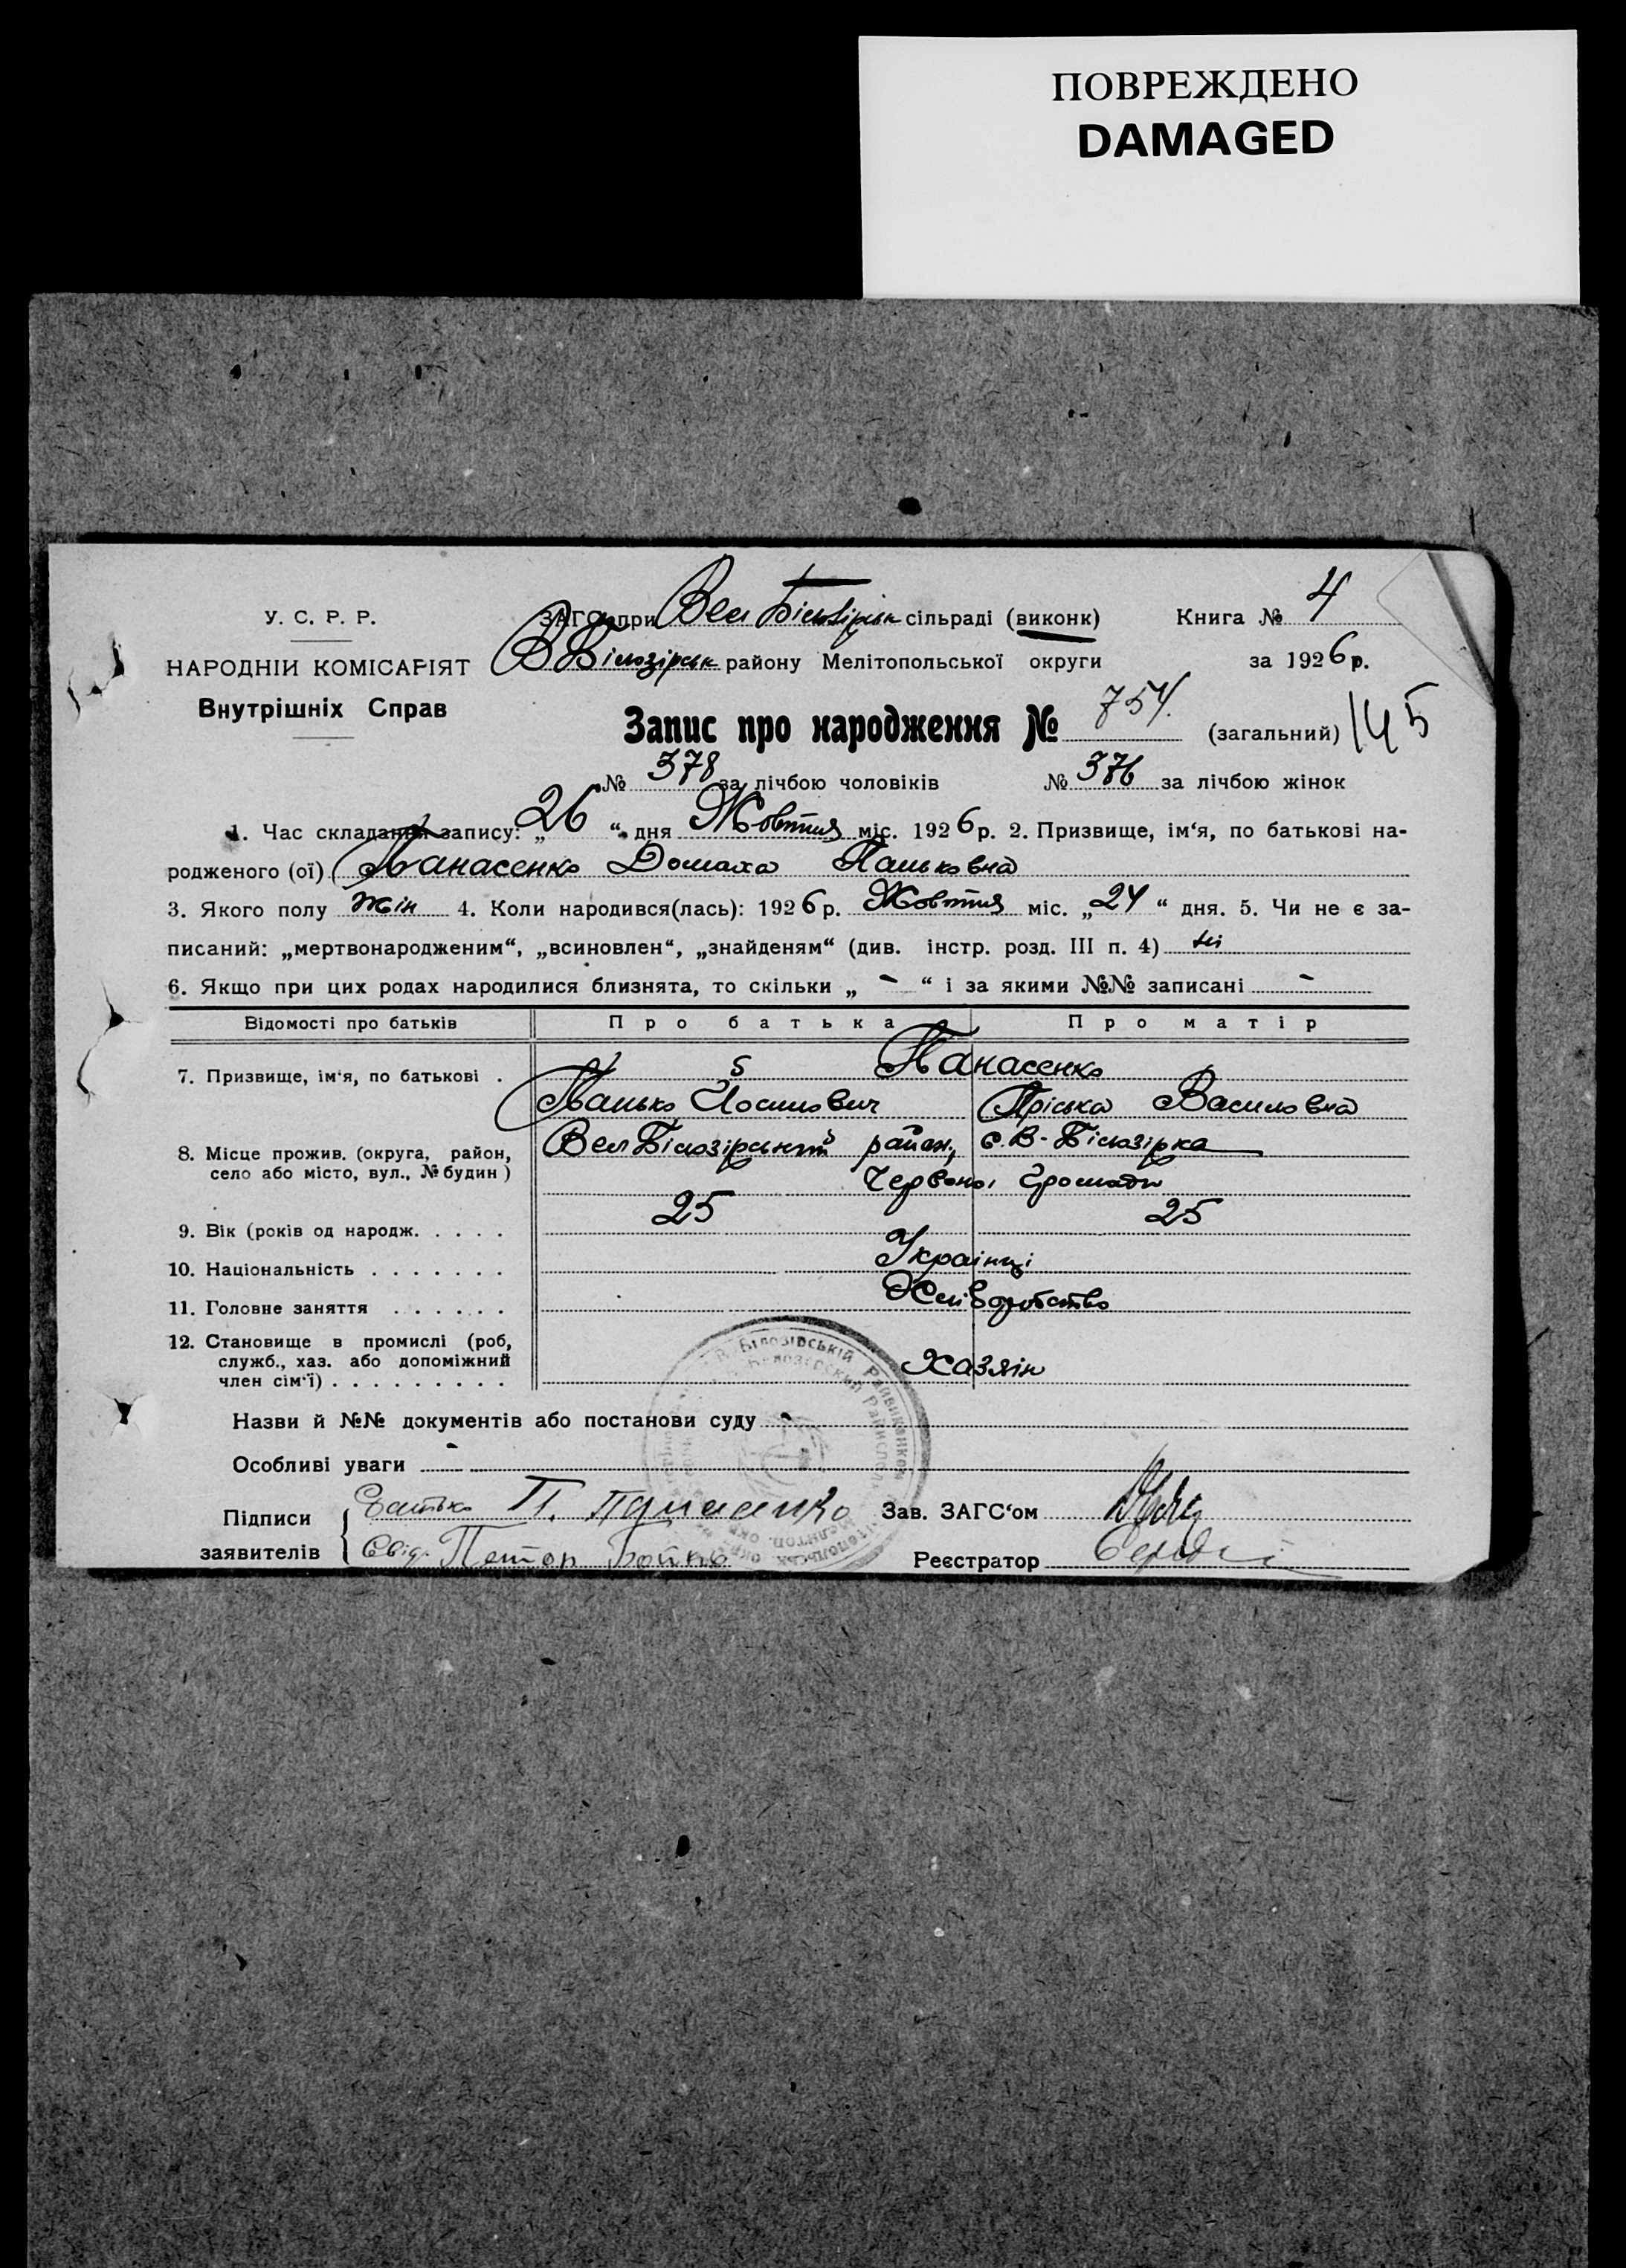 ПОВРЕЖДЕНО
DAMAGED
У. С. Р. Р.
ЗАГС при Вел Білозірськ сільраді (виконк) Книга № 4
НАРОДНІЙ КОМІСАРІЯТ В Білозірськ району Мелітопольської округи за 1926 р.
Внутрішніх Справ
Запис про народження № 754. (загальний) 145
№ 378 за лічбою чоловіків № 376 за лічбою жінок
1. Час складання запису: „26“ дня Жовтня міс. 1926 р. 2. Призвище, ім‘я, по батькові на-
родженого (ої) Панасенко Домаха Паньковна
3. Якого полу жін 4. Коли народився(лась): 1926 р. Жовтня міс. „24“ дня. 5. Чи не є за-
писаний: „мертвонародженим“, „всиновлен“, „знайденям“ (див. інстр. розд. III п. 4) ні
6. Якщо при цих родах народилися близнята, то скільки „ - “ і за якими №№ записані -
Відомості про батьків Про батька Про матір
7. Призвище, ім‘я, по батькові . Панасенко
Панько Йосипович Пріська Василовна
8. Місце прожив. (округа, район, Вел Білозірський район, с. В-Білозірка
село або місто, вул., № будин ) Червоної Громади
9. Вік (років од народж. . . . . 25 25
10. Національність . . . . . . . Українці
11. Головне заняття . . . . . . Хліборобство
12. Становище в промислі (роб,
служб., хаз. або допоміжний Хазяїн
член сім‘ї) . . . . . . . . .
В. Білозірській Райвиконком
Назви й №№ документів або постанови суду -
Особливі уваги -
Підписи Батько П. Панасенко Зав. ЗАГС‘ом
заявителів Свід. Петон Бойко Реєстратор